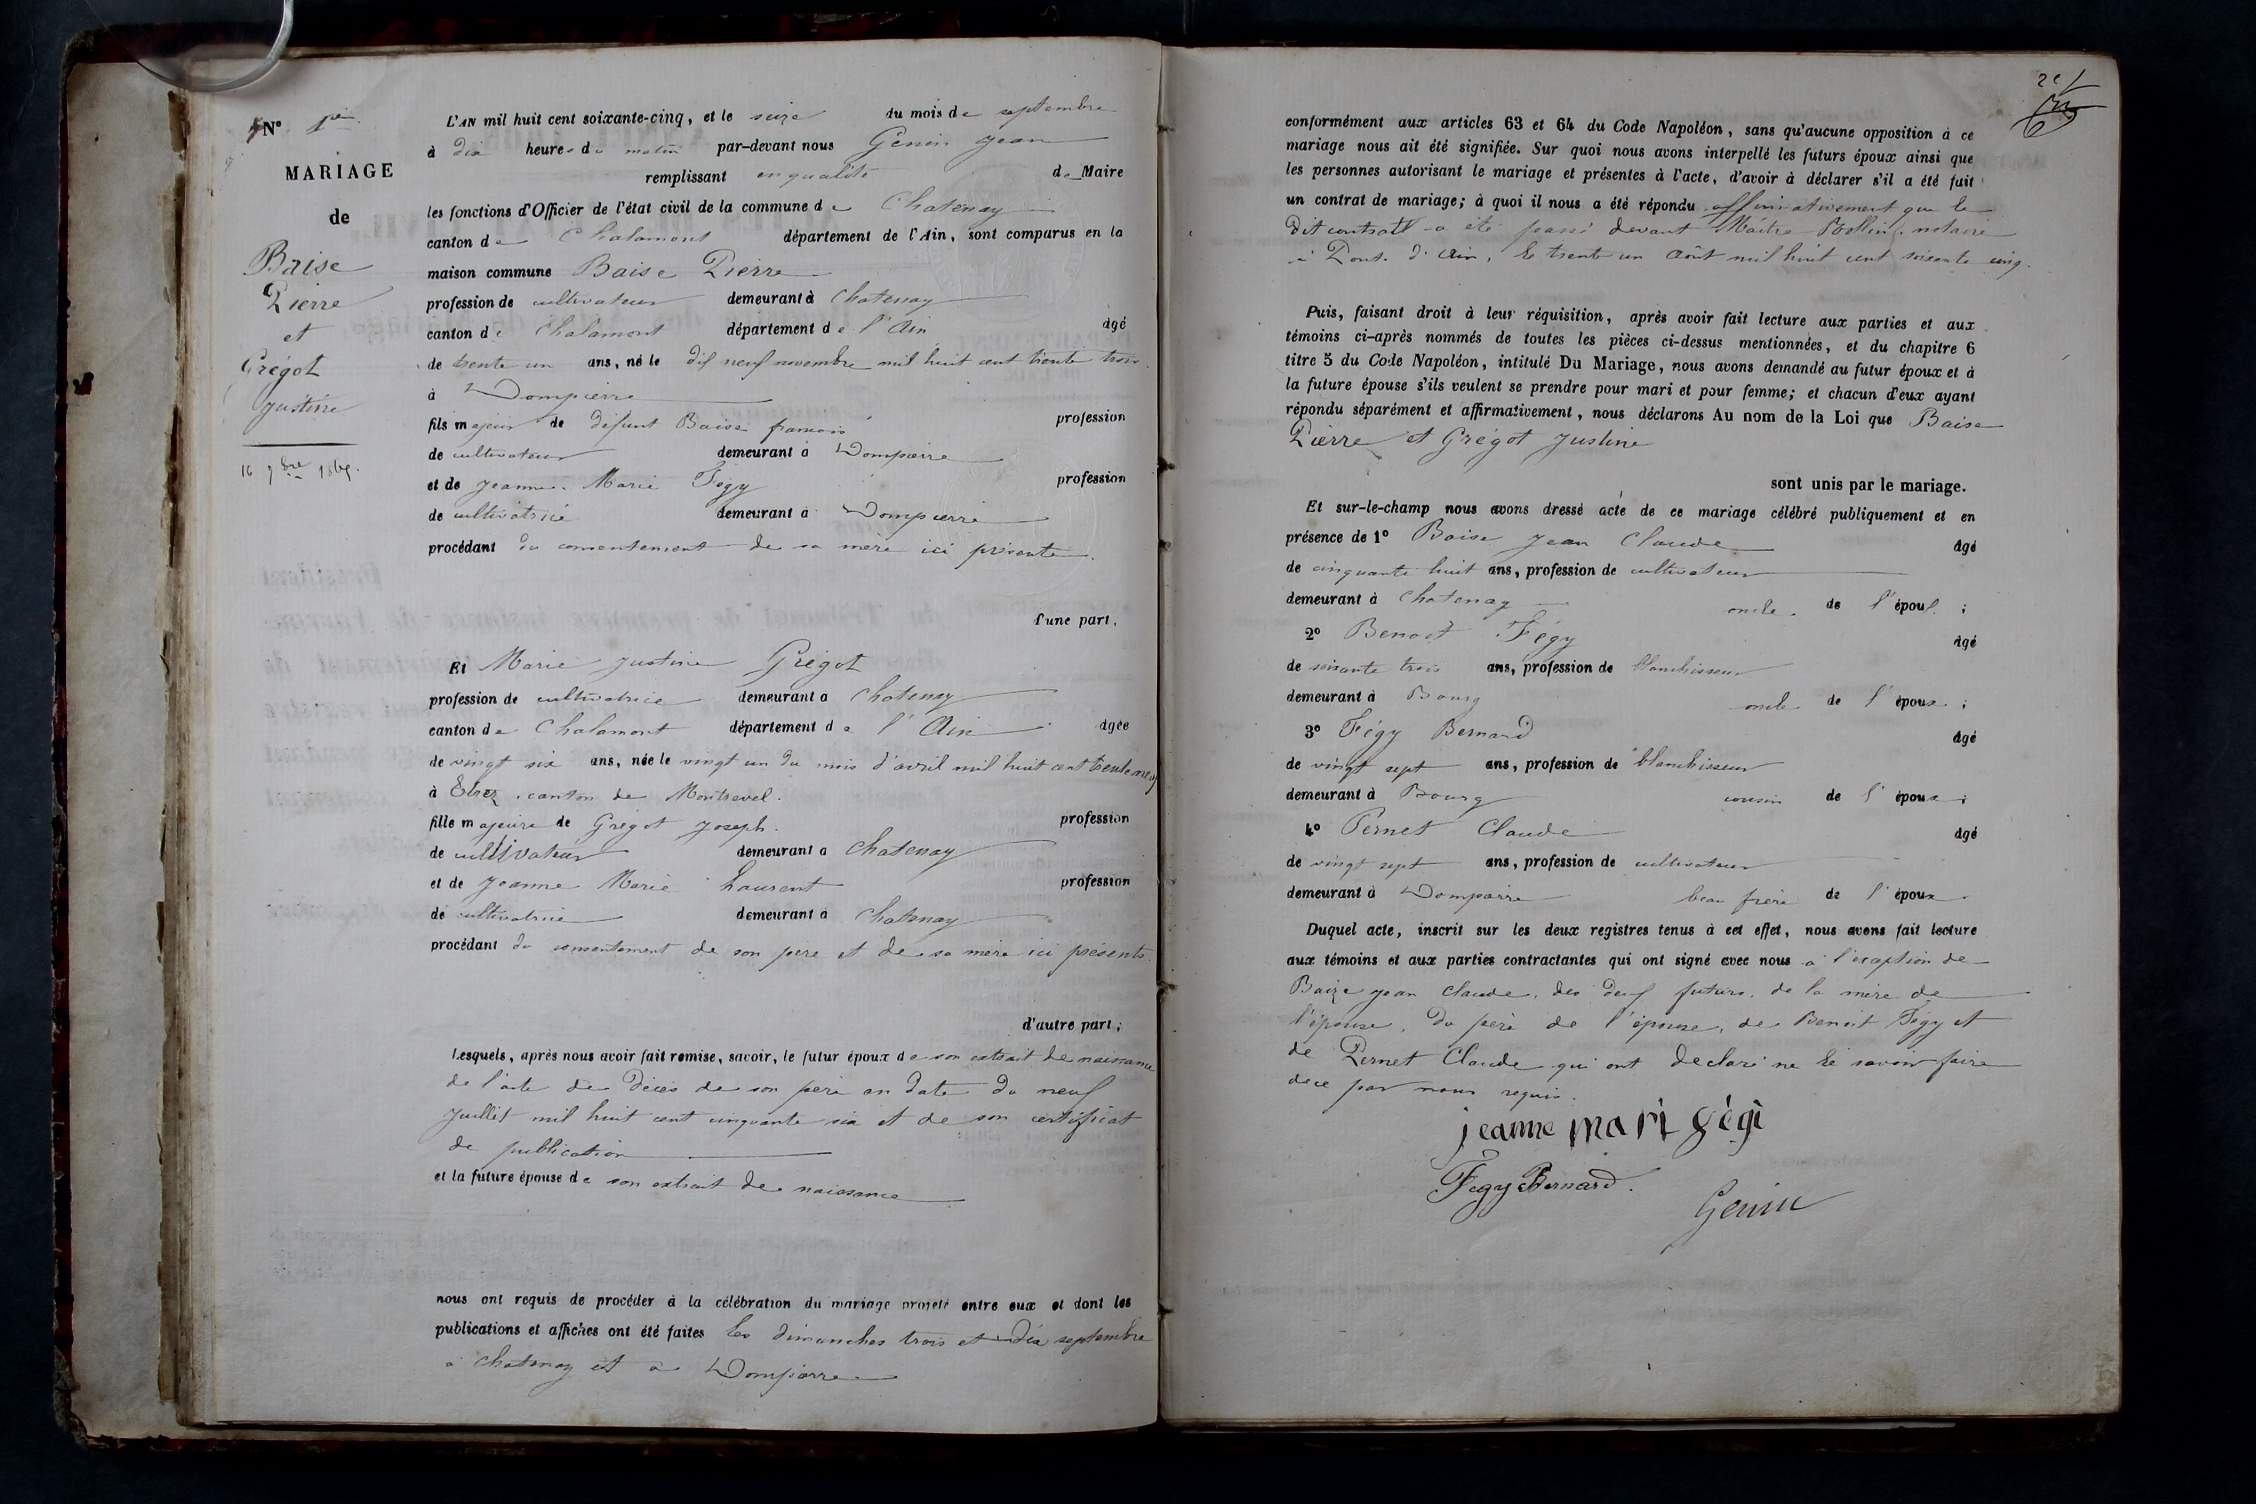 N° 1er
MARIAGE
de
Baise
Pierre
et
Grégot
Justine
16 7bre 1865.
L'AN mil huit cent soixante-cinq, et le seize du mois de septembre
à dix heures du matin par-devant nous Génin Jean
remplissant en qualité de Maire
les fonctions d'Officier de l'état civil de la commune de Chatenay
canton de Chalamont département de l'Ain, sont comparus en la
maison commune Baise Pierre
profession de cultivateur demeurant à Chatenay
canton de Chalamont département de l'Ain âgé
de trente un ans, né le dix neuf novembre mil huit cent trente trois
à Dompierre
fils majeur de défunt Baise francois profession
de cultivateur demeurant à Dompierre
et de Jeanne Marie Fégy profession
de cultivatrice demeurant à Dompierre
procédant du consentement de sa mère ici présente.
d'une part,
Et Marie Justine Grégot
profession de cultivatrice demeurant à Chatenay
canton de Chalamont département de l'Ain âgée
de vingt six ans, née le vingt un du mois d'avril mil huit cent trente neuf
à Etrez, canton de Montrevel.
fille majeure de Grégot Joseph. profession
de cultivateur demeurant à Chatenay
et de Jeanne Marie Laurent profession
de cultivatrice demeurant à Chatenay
procédant du consentement de son père et de sa mère ici présents.
d'autre part;
Lesquels, après nous avoir fait remise, savoir, le futur époux de son extrait de naissance
de l'acte de décès de son père en date du neuf
juillet mil huit cent cinquante six et de son certificat
de publication
et la future épouse de son extrait de naissance
nous ont requis de procéder à la célébration du mariage projeté entre eux et dont les
publications et affiches ont été faites les dimanches trois et dix septembre
à Chatenay et à Dompierre
conformément aux articles 63 et 64 du Code Napoléon, sans qu'aucune opposition à ce
mariage nous ait été signifiée. Sur quoi nous avons interpellé les futurs époux ainsi que
les personnes autorisant le mariage et présentes à l'acte, d'avoir à déclarer s'il a été fait
un contrat de mariage; à quoi il nous a été répondu affirmativement que le
dit contrat a été passé devant Maître Bollin, notaire
à Pont. d'Ain, le trente un août mil huit cent soixante cinq.
Puis, faisant droit à leur réquisition, après avoir fait lecture aux parties et aux
témoins ci-après nommés de toutes les pièces ci-dessus mentionnées, et du chapitre 6
titre 5 du Code Napoléon, intitulé Du Mariage, nous avons demandé au futur époux et à
la future épouse s'ils veulent se prendre pour mari et pour femme; et chacun d'eux ayant
répondu séparément et affirmativement, nous déclarons Au nom de la Loi que Baise
Pierre et Grégot Justine
sont unis par le mariage.
Et sur-le-champ nous avons dressé acte de ce mariage célébré publiquement et en
présence de 1° Baise Jean Claude âgé
de cinquante huit ans, profession de cultivateur
demeurant à Chatenay oncle de l'époux ;
2° Benoit Fégy âgé
de soixante trois ans, profession de blanchisseur
demeurant à Bourg oncle de l'époux ;
3° Fégy Bernard âgé
de vingt sept ans, profession de blanchisseur
demeurant à Bourg cousin de l'époux ;
4° Pernet Claude âgé
de vingt sept ans, profession de cultivateur
demeurant à Dompierre beau frère de l'époux.
Duquel acte, inscrit sur les deux registres tenus à cet effet, nous avons fait lecture
aux témoins et aux parties contractantes qui ont signé avec nous à l'exception de
Baize Jean Claude, des deux futurs, de la mère de
l'épouse, du père de l'épouse, de Benoit Fégy et
de Pernet Claude qui ont déclaré ne le savoir faire
de ce par nous requis.
jeanne mari gégi
Fegy Bernard.
Genin